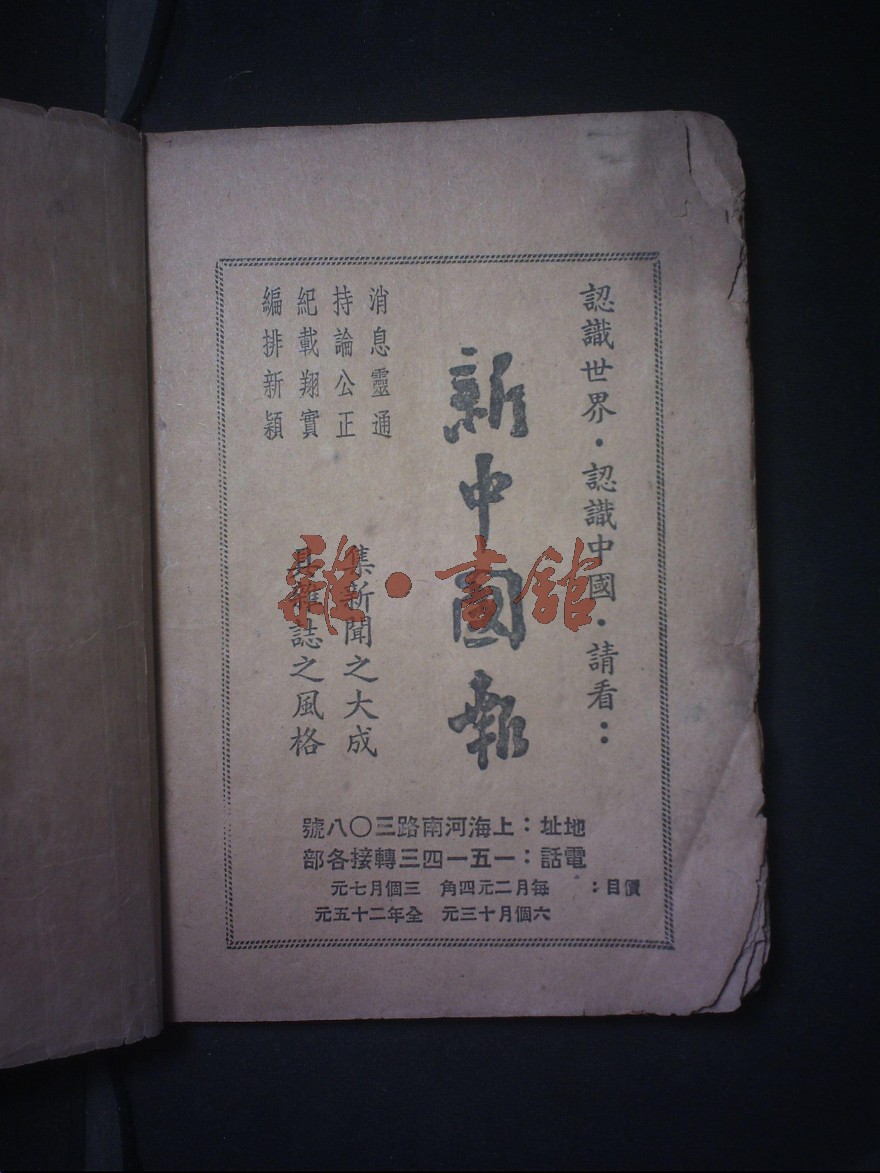 認識世界・認識中國・請看：
新中國報
消息靈通
持論公正
紀載翔實
編排新穎
集新聞之大成
具雜誌之風格
地址：上海河南路三〇八號
電話：一五一四三轉接各部
價目：每月二元四角 三個月七元
六個月十三元 全年二十五元
雜・書館